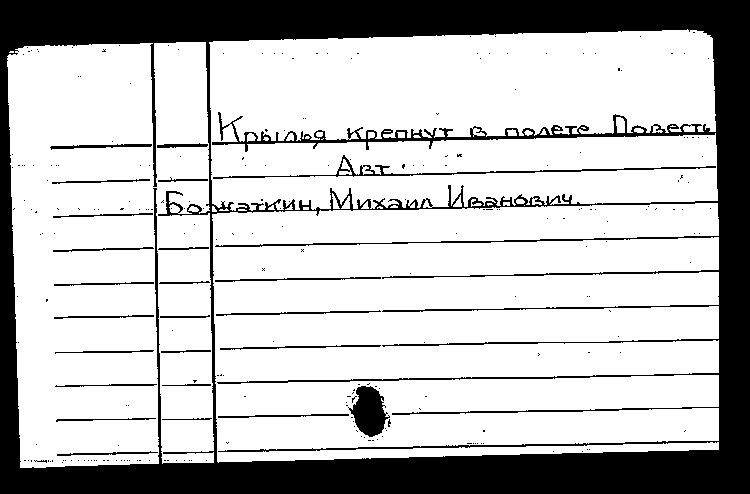 Крылья крепнут в полете Повесть
Авт.
Божаткин, Михаил Иванович.